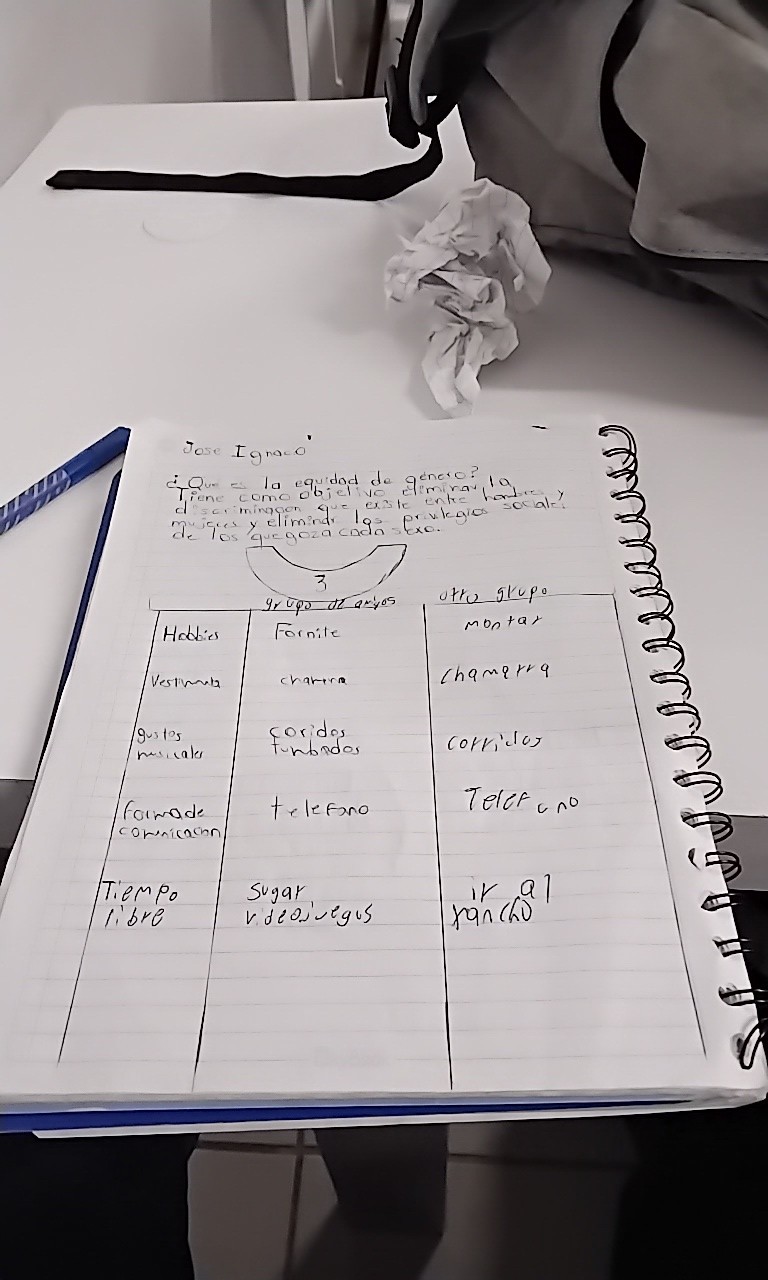 Jose Ignaco
¿Que es la equidad de género?
Tiene como objetivo eliminar la
discriminacion que existe entre hombres y
mujeres y eliminar los privilegios sociales
de los que goza cada sexo.
3
grupo de amigos otro grupo
Hobbies Fornite montar
Vestimenta chamarra chamarra
gustos musicales coridos tunbados corridos
forma de comunicacion telefono Telefono
Tiempo libre Sugar videojuegos ir al rancho